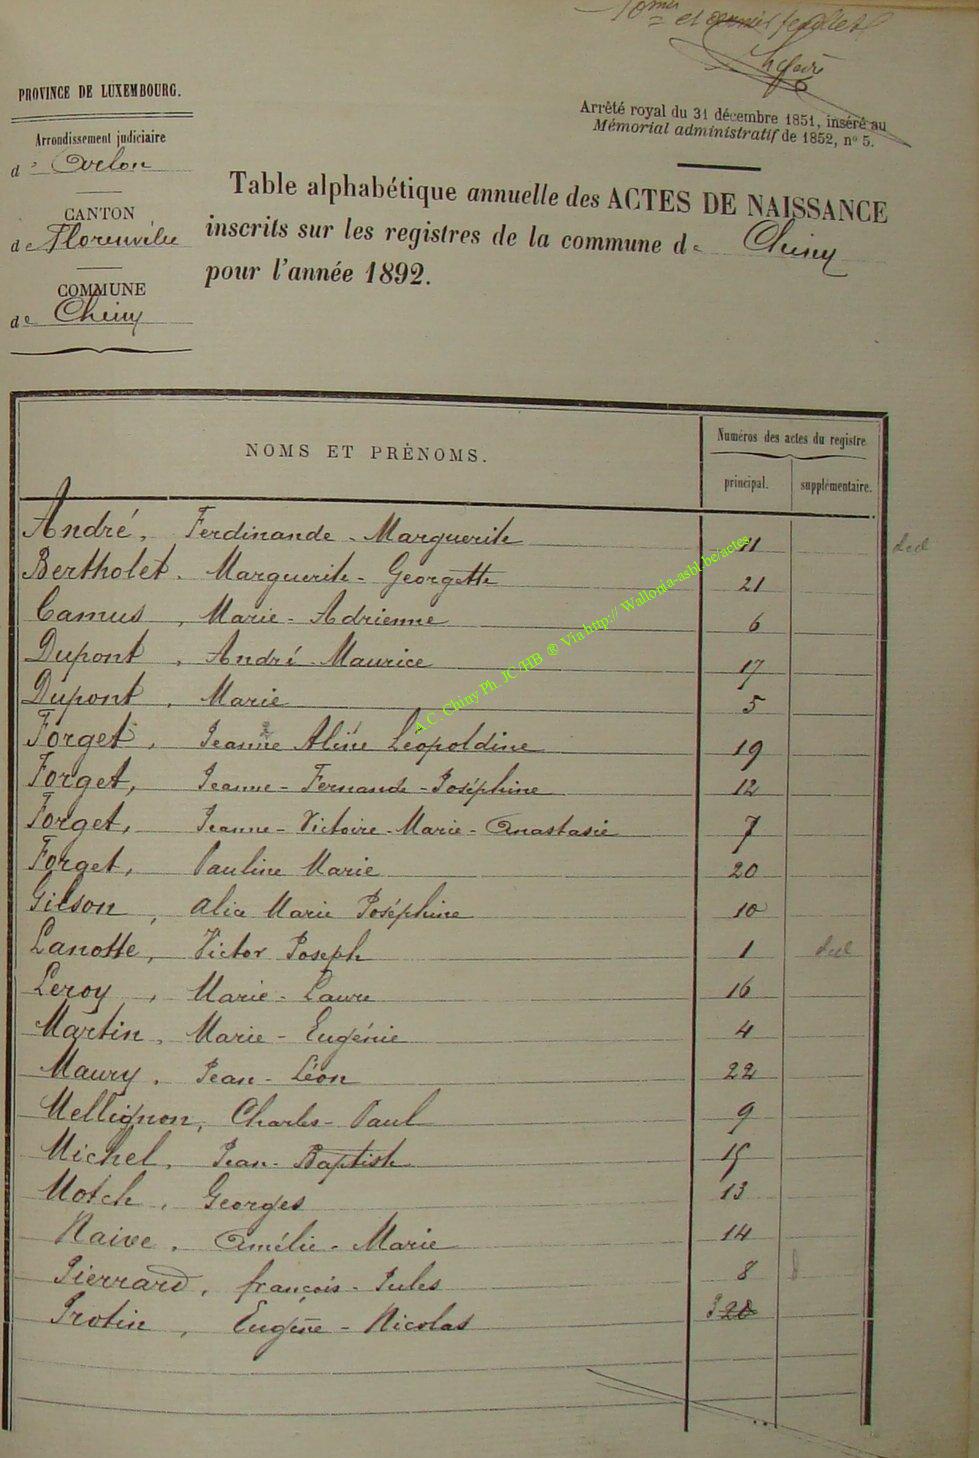 10mes et dernier feuillet
PROVINCE DE LUXEMBOURG.
Arrondissement judiciaire
d' Arlon
CANTON
de Florenville
COMMUNE
de Chiny
Arrêté royal du 31 décembre 1851, inséré au
Mémorial administratif de 1852, n° 5.
Table alphabétique annuelle des ACTES DE NAISSANCE
inscrits sur les registres de la commune de Chiny
pour l'année 1892.
NOMS ET PRÉNOMS.
Numéros des actes du registre
principal.
supplémentaire.
André, Ferdinande - Marguerite 11 ded
Bertholet, Marguerite - Georgette 21
Camus, Marie - Adrienne 6
Dupont, André Maurice 17
Dupont, Marie 5
Forget, Jeanne Aline Léopoldine 19
Forget, Jeanne - Fernande - Joséphine 12
Forget, Jeanne - Victoire - Marie - Anastasie 7
Forget, Pauline Marie 20
Gilson, Alia Marie Joséphine 10
Lanotte, Victor Joseph 1 ded
Leroy, Marie - Laure 16
Martin, Marie - Eugénie 4
Maury, Jean - Léon 22
Mellignon, Charles - Paul 9
Michel, Jean - Baptiste 15
Motch, Georges 13
Naive, Amélie - Marie 14
Pierrard, françois - Jules 8
Protin, Eugène - Nicolas
A.C. Chiny Ph. JC/HB ® Via http:// Wallonia-asbl.be/actes